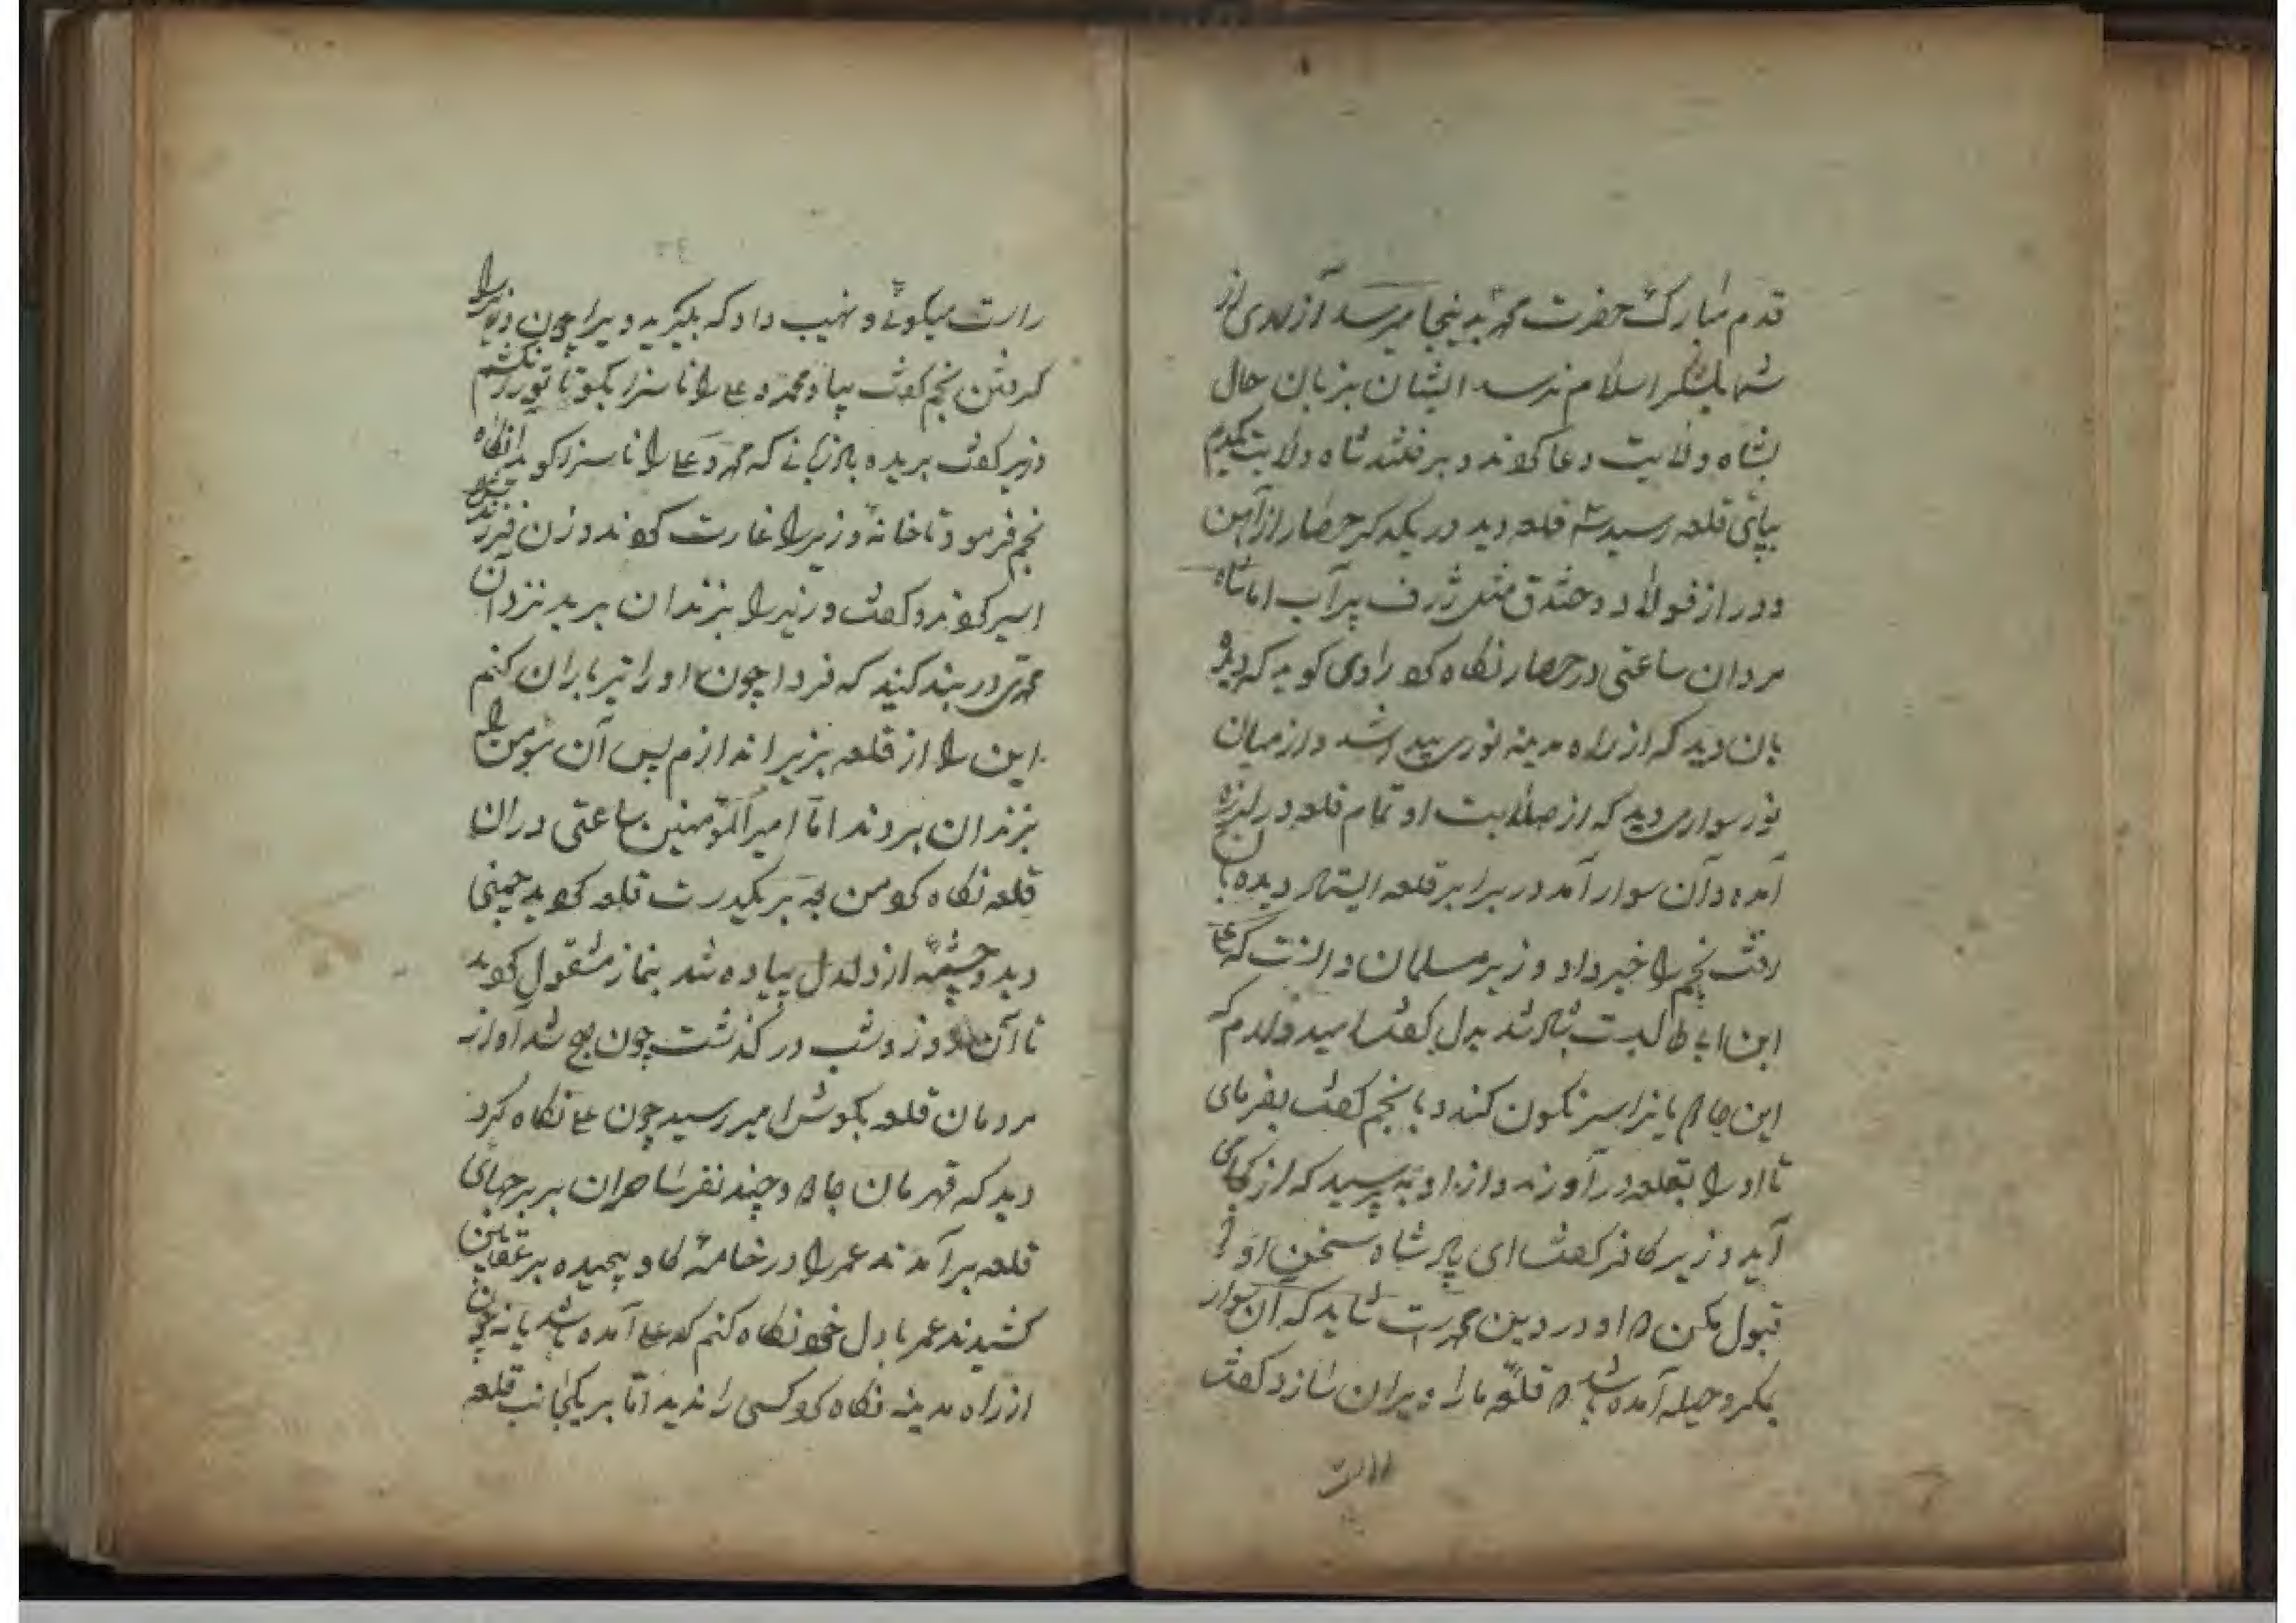 قدم مبارک حضرت محمد بدینجا میرسد آزادی از
شما بلشکر اسلام نرسد ایشان بزبان حال
بشاه ولایت دعا کردند و برفتند شاه ولایت
بپای قلعه رسید سه قلعه دید در یکدگر حصار از آهن
و در از فولاد و خندق مثل ژرف پر آب اما شاه
مردان ساعتی در حصار نگاه کرد راوی گوید که دیده
بان دید که از راه مدینه نوری پیدا شد و از میان
نور سواری دید که از صلابت او تمام قلعه در لرزه
آمده و آن سوار آمد در برابر قلعه ایستاد دیده بان
رفت نجم را خبر داد وزیر مسلمان دانست که علی
ابن ابی طالبست شاد شد بدل گفت امید وارم که
این جادو بانرا سرنگون کند و با نجم گفت بفرمای
تا او را بقلعه در آورند و از او بپرسید که از کجا می
آید وزیر کافر گفت ای پادشاه سخن او را
قبول مکن که او در دین محمدست شاید که آن سوار
بمکر و حیله آمده باشد که قلعه ما را ویران سازد گفت
راست
راست میگوئی و نهیب داد که بگیرید ویرا چون وزیر را
گرفتن نجم گفت بیا و محمد و علی را ناسزا بگو تا تورا نکشم
وزیر گفت بریده باد زبانی که محمد و علی را ناسزا گوید آنگاه
نجم فرمود تا خانه وزیر را غارت کردند و زن فرزندش
اسیر کردند و گفت وزیر را بزندان برید نزد آن
محمدی در بند کنید که فردا چون او را تیر باران کنم
این را از قلعه بزیر اندازم پس آن مومن را
بزندان بردند اما امیرالمؤمنین ساعتی در ان
قلعه نگاه کرد من بعد بر یکدست قلعه گردید چمنی
دید و چشمه از دلدل پیاده شد بنماز مشقول گردید
تا آن روز و شب در گذشت چون صبح شد آوازه
مردمان قلعه بگوش امیر رسید چون علی نگاه کرد
دید که قهرمان جادو و چند نفر ساحران بر برجهای
قلعه بر آمدند عمر را در خامه گاو پیچیده بر عقابین
کشیدند عمر با دل خود نگاه کنم که علی آمده باشد یا نه چون
از راه مدینه نگاه کرد کسی را ندید اما بر یکجانب قلعه